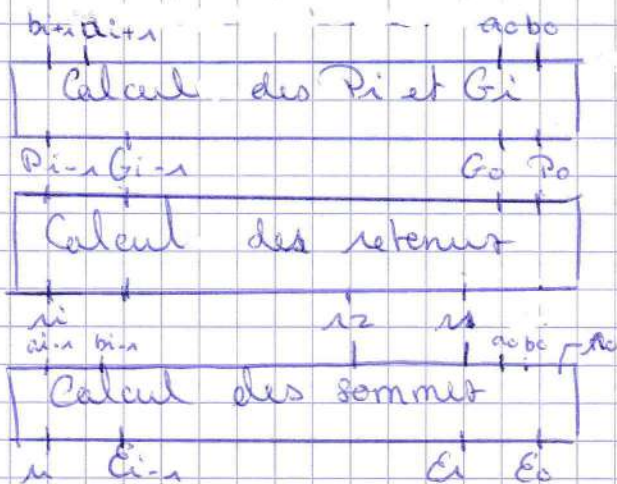 bi+1 ai+1 - - - - - a0 b0
Calcul des Pi et Gi
Pi-1 Gi-1 G0 P0
Calcul des retenues
ri r2 r1
ai-1 bi-1 a0 b0 r0
Calcul des sommes
ri Ei-1 E1 E0